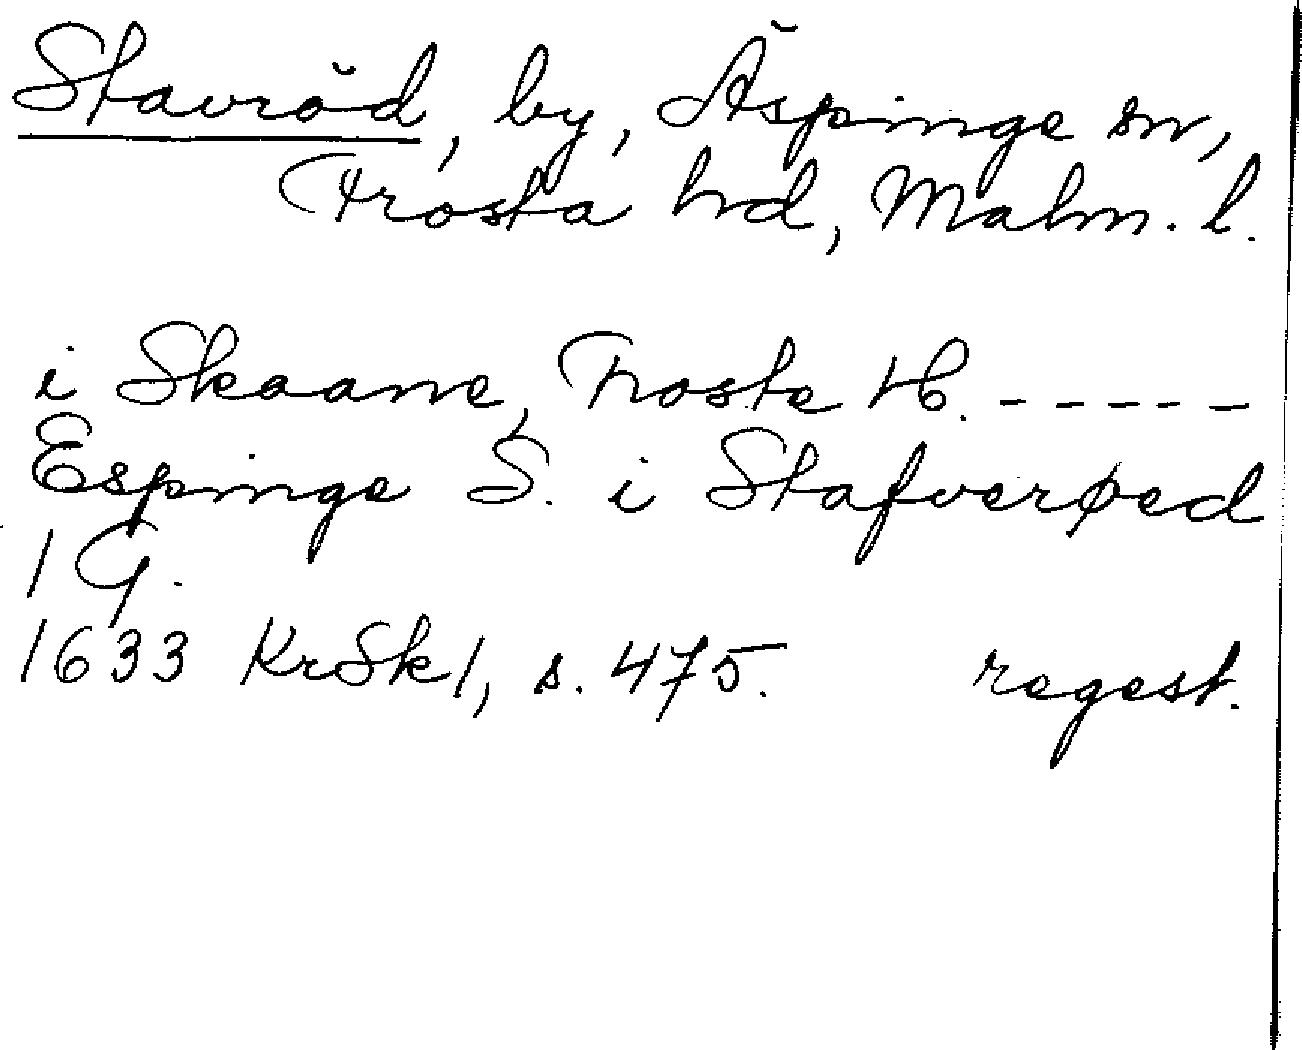 Stavröd, by, Äspinge sn,
Frosta hd, Malm. l.
i Skaane, Froste H. - - - - -
Espinge S. i Stafverøed
1 G.
1633 KrSk1, s. 475. regest.